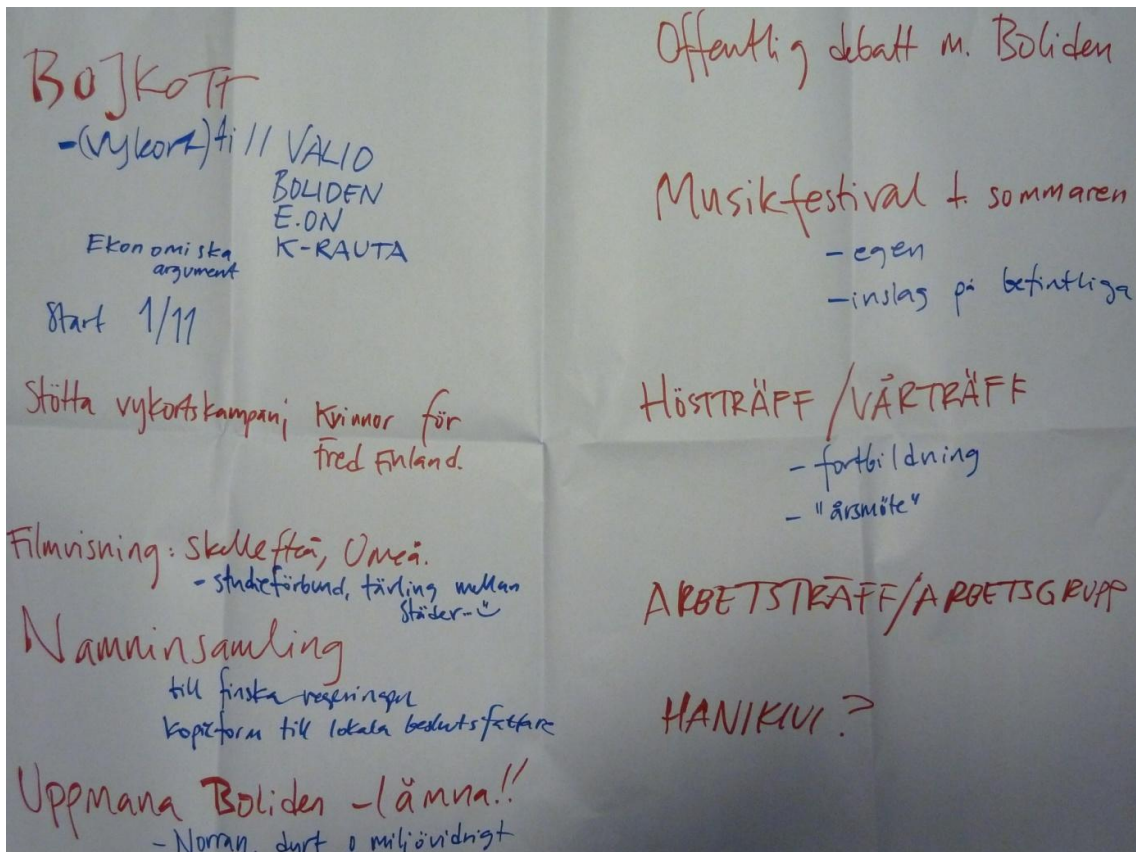 BOJKOTT
-(vykort) till VALIO
BOLIDEN
E.ON
K-RAUTA
Ekonomiska
argument
Start 1/11
Stötta vykortskampanj Kvinnor för
Fred Finland.
Filmvisning: Skellefteå, Umeå.
- studieförbund, tävling mellan
städer...
Namninsamling
till finska regeringen
kopieform till lokala beslutsfattare
Uppmana Boliden - lämna!!
- Norran, dyrt o miljövidrigt
Offentlig debatt m. Boliden
Musikfestival t. sommaren
- egen
- inslag på befintliga
HÖSTTRÄFF / VÅRTRÄFF
- fortbildning
- "årsmöte"
ARBETSTRÄFF/ARBETSGRUPP
HANIKIVI?